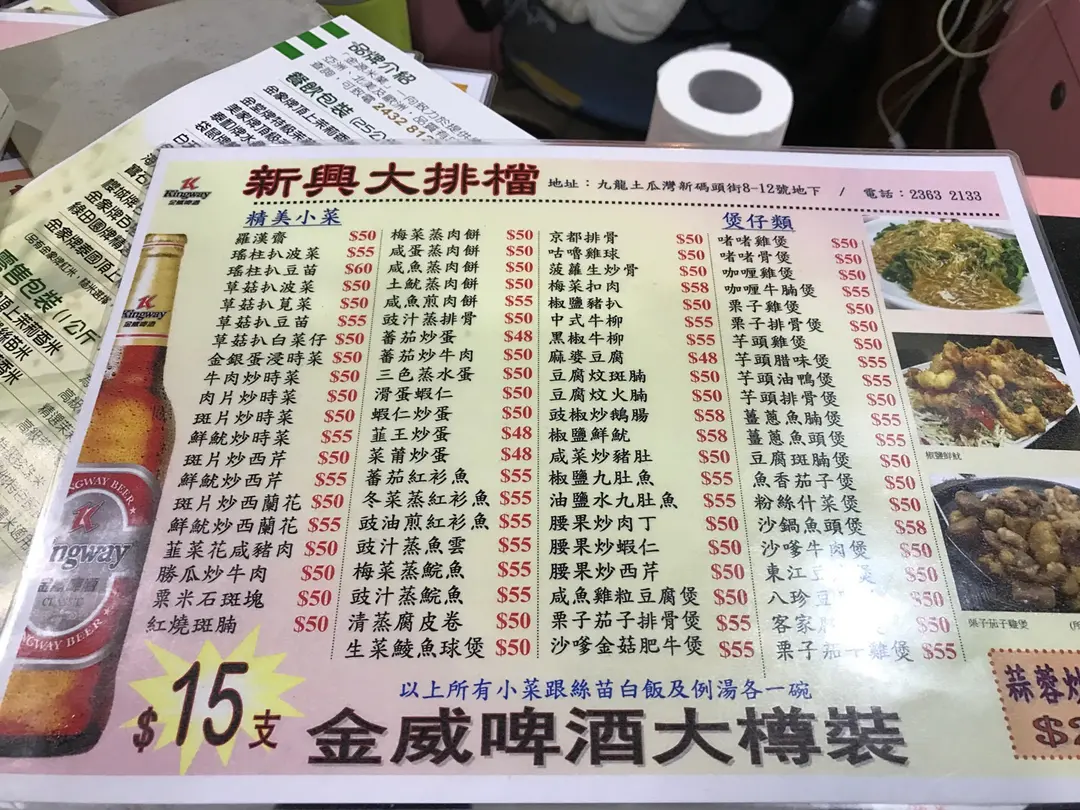 品牌介紹
查詢，可致電 2432 81
餐飲包裝 (25公
零售包裝 (1公斤
Kingway
金威啤酒
新興大排檔
地址：九龍土瓜灣新碼頭街8-12號地下 / 電話：2363 2133
精美小菜
羅漢齋 $50
瑤柱扒波菜 $55
瑤柱扒豆苗 $60
草菇扒波菜 $50
草菇扒莧菜 $50
草菇扒豆苗 $55
草菇扒白菜仔 $50
金銀蛋浸時菜 $50
牛肉炒時菜 $50
肉片炒時菜 $50
斑片炒時菜 $50
鮮魷炒時菜 $55
斑片炒西芹 $50
鮮魷炒西芹 $55
斑片炒西蘭花 $50
鮮魷炒西蘭花 $55
韮菜花咸豬肉 $50
勝瓜炒牛肉 $50
粟米石斑塊 $50
紅燒斑腩 $50
梅菜蒸肉餅 $50
咸蛋蒸肉餅 $50
咸魚蒸肉餅 $50
土魷蒸肉餅 $50
咸魚煎肉餅 $55
豉汁蒸排骨 $50
番茄炒蛋 $48
番茄炒牛肉 $50
三色蒸水蛋 $50
滑蛋蝦仁 $50
蝦仁炒蛋 $50
韮王炒蛋 $48
菜甫炒蛋 $48
番茄紅衫魚 $55
冬菜蒸紅衫魚 $55
豉油煎紅衫魚 $55
豉汁蒸魚雲 $55
梅菜蒸鯇魚 $55
豉汁蒸鯇魚 $55
清蒸腐皮卷 $50
生菜鯪魚球煲 $50
京都排骨 $50
咕嚕雞球 $50
菠蘿生炒骨 $50
梅菜扣肉 $58
椒鹽豬扒 $50
中式牛柳 $55
黑椒牛柳 $55
麻婆豆腐 $48
豆腐炆斑腩 $50
豆腐炆火腩 $50
豉椒炒鵝腸 $58
椒鹽鮮魷 $58
咸菜炒豬肚 $50
椒鹽九肚魚 $55
油鹽水九肚魚 $55
腰果炒肉丁 $50
腰果炒蝦仁 $50
腰果炒西芹 $50
咸魚雞粒豆腐煲 $50
栗子茄子排骨煲 $55
沙嗲金菇肥牛煲 $55
煲仔類
啫啫雞煲 $50
啫啫骨煲 $50
咖喱雞煲 $50
咖喱牛腩煲 $55
栗子雞煲 $50
栗子排骨煲 $50
芋頭雞煲 $50
芋頭腊味煲 $55
芋頭油鴨煲 $55
芋頭排骨煲 $50
薑蔥魚腩煲 $55
薑蔥魚頭煲 $55
豆腐斑腩煲 $50
魚香茄子煲 $50
粉絲什菜煲 $50
沙鍋魚頭煲 $58
沙嗲牛肉煲 $50
東江豆 煲 $50
八珍豆 $50
客家 煲 $50
栗子茄子雞煲 $55
椒鹽鮮魷
栗子茄子雞煲
以上所有小菜跟絲苗白飯及例湯各一碗
$15支
金威啤酒大樽裝
蒜蓉炒
$2
KINGWAY BEER
Kingway
金威啤酒
CLASSIC
KINGWAY BEER